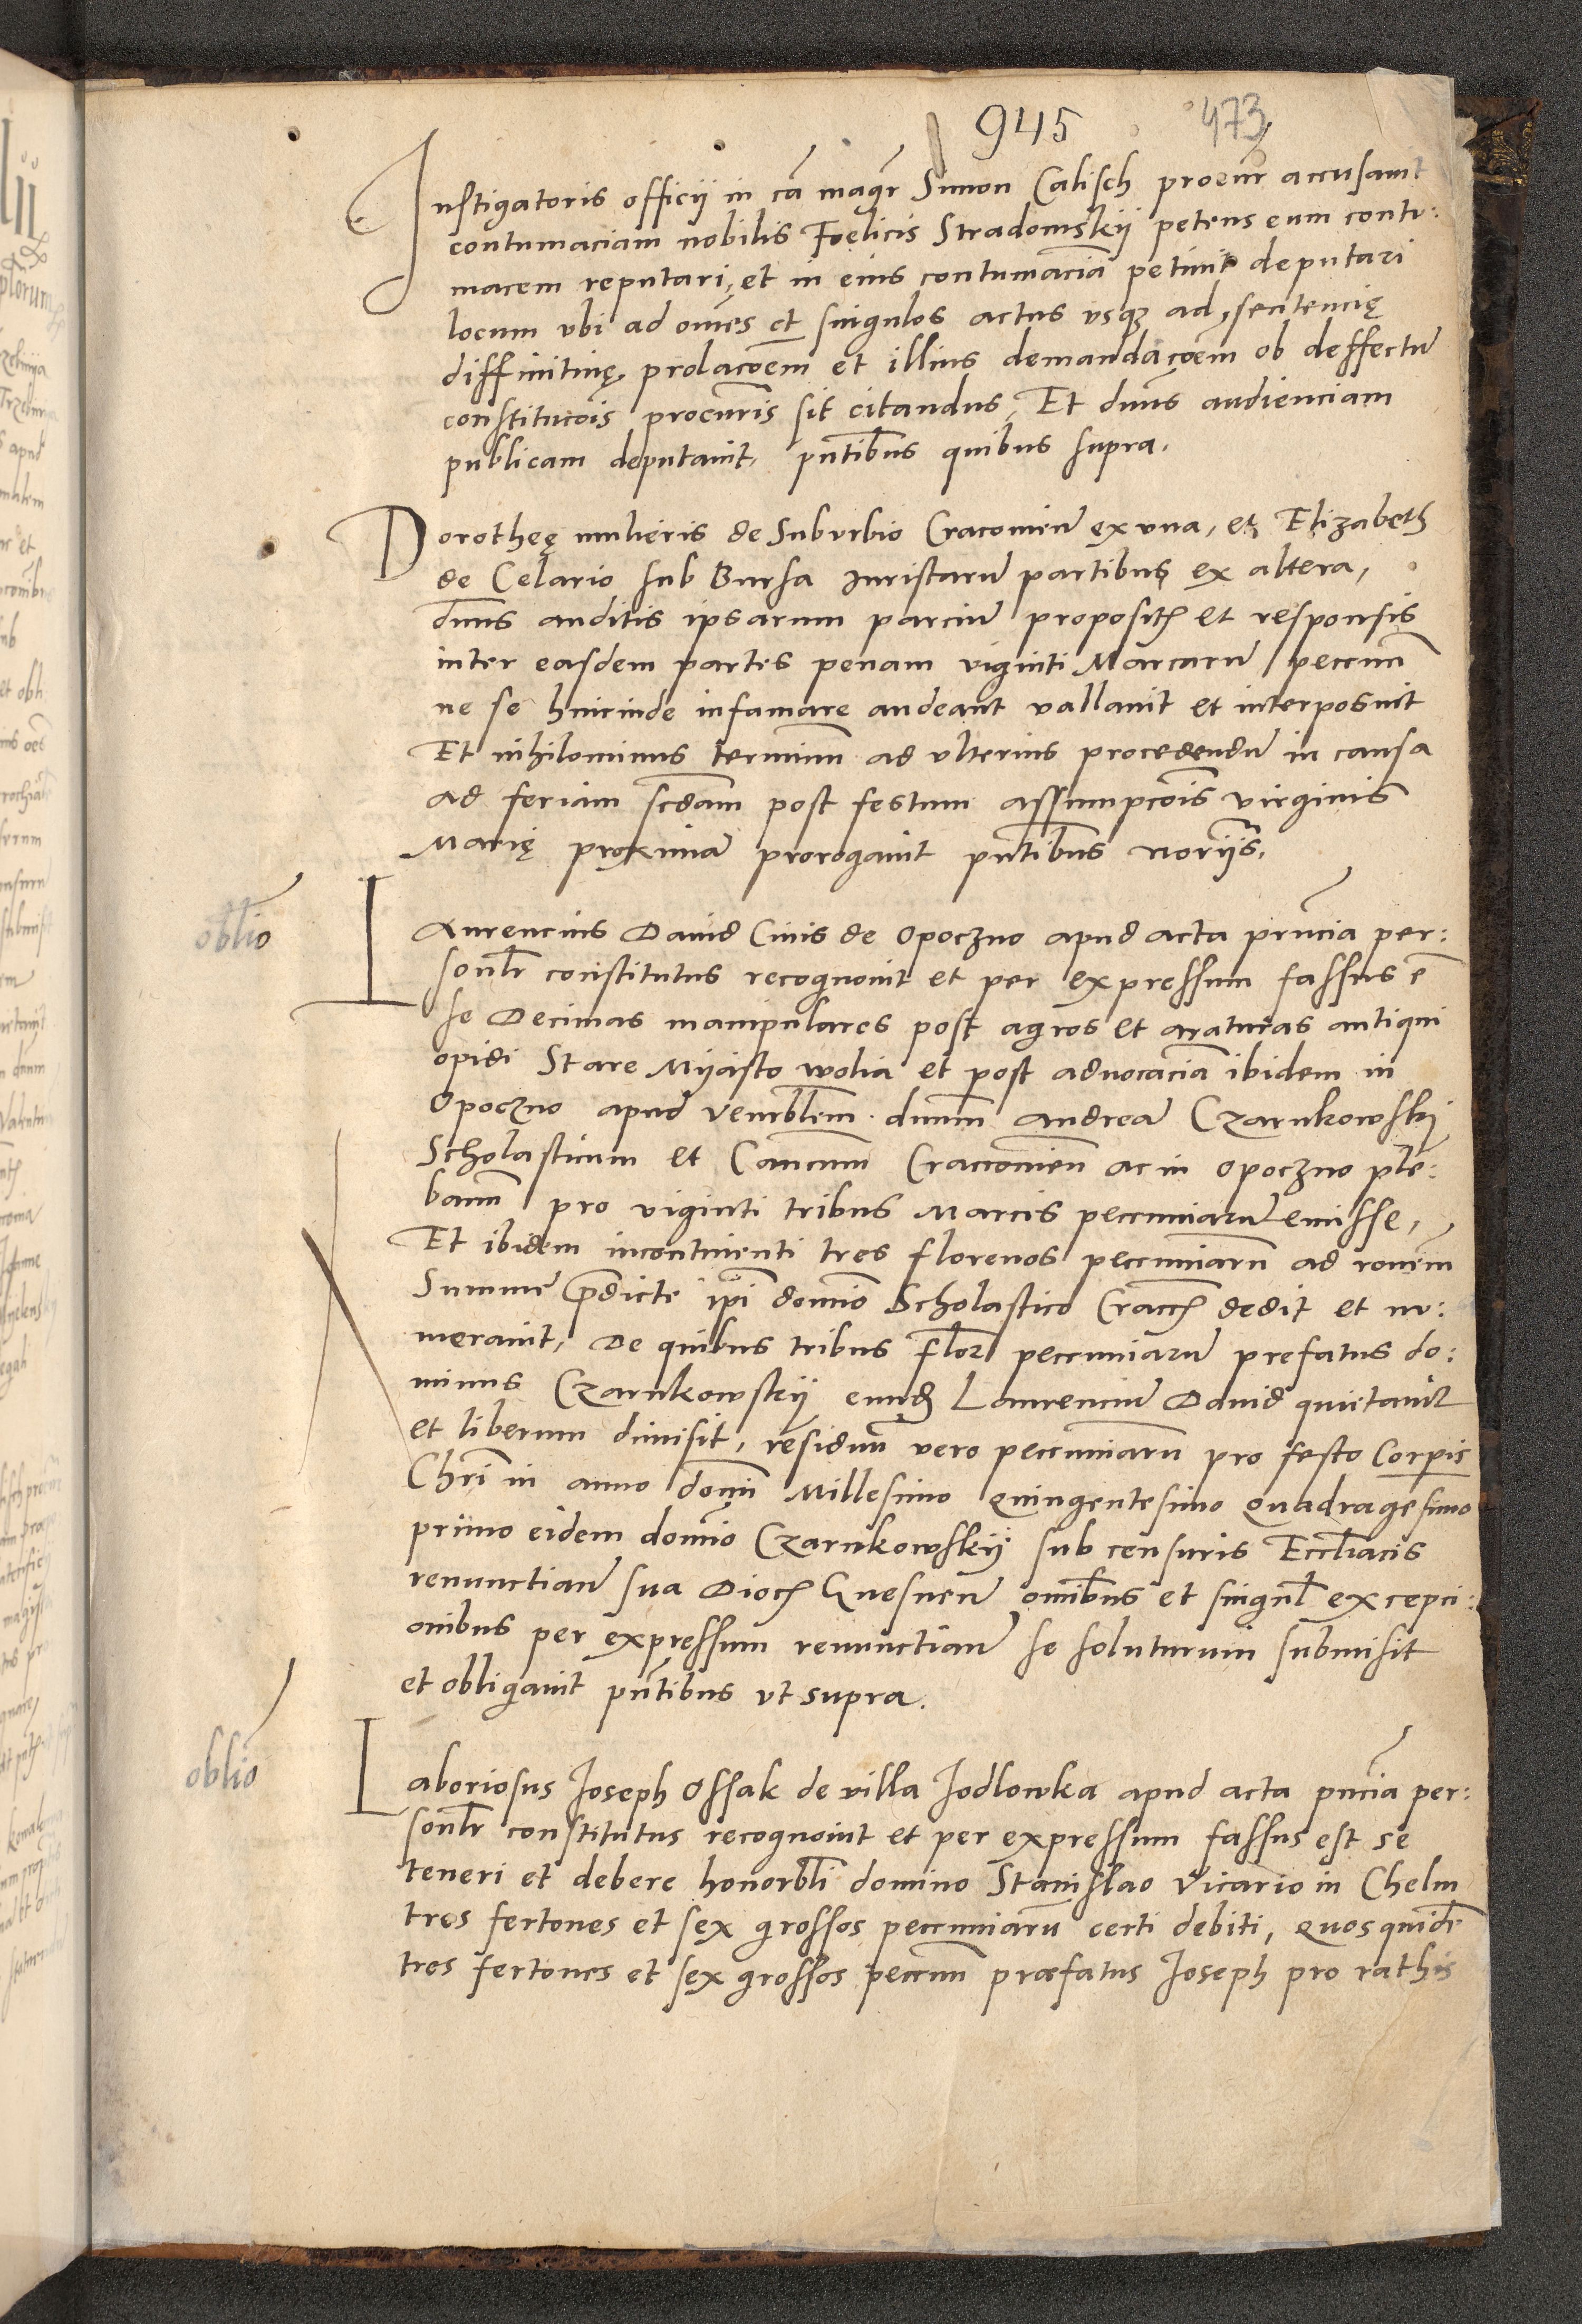 945 473
Instigatoris officij in cā magr Simon Calisch procur accusauit
contumaciam nobilis Foelicis Stradomskij petens eum contu:
macem reputari, et in eius contumaciā petiuit deputari
locum vbi ad om̄es et singulos actus vsq ad sentencię
diffinitiuę prolacōem et illius demandacōem ob deffectū
constitucōis procur̄is sit citandus, Et dn̄us audienciam
publicam deputauit, pn̄tibus quibus supra.
Dorotheę mulieris de Suburbio Cracouieñ ex vna, et Elizabeth
de Celario sub Bursa Juristarū partibus ex altera,
dn̄us auditis ipsarum parciū proposit et responsis
inter easdem partes penam viginti Marcarū pecun̄
ne se hincinde infamare audeant vallauit et interposuit
Et nihilominus terminū ad vlterius procedendū in causa
ad feriam scdam post festum assumpcōis virginis
Marię proximā prorogauit pn̄tibus notrijs.
oblio
Laurencius Dauid Ciuis de Opoczno apud acta prn̄cia per:
sonlr constitutus recognouit et per expressum fassus ē
se Decimas manipulares post agros et araturas antiqui
opidi Stare Myasto wolia et post aduocaciā ibidem in
Opoczno apud venrblem dnum Andreā Czarnkowskij
Scholasticum et Cancum Cracouieñ ac in Opoczno ple:
banū pro viginti tribus Marcis pecuniarū emisse,
Et ibidem incontinenti tres florenos pecuniarū ad ronem
Summe p̄dicte ip̄i domīo Scholastico Cracc dedit et nu:
merauit, De quibus tribus flor pecuniarū prefatus do:
minus Czarnkowskij eund Laurenciū Dauid quittauit
et liberum dimisit, residuū vero pecuniarū pro festo Corpis
Chrī in anno domi Millesimo Quingentesimo Quadragesimo
primo eidem domīo Czarnkowskij sub censuris Eccliacis
renunctiañ sua Dioc Gnesneñ om̄ibus et singul excepci:
onibus per expressum renunctiañ se soluturum submisit
et obligauit pn̄tibus vt supra.
oblio
Laboriosus Joseph Ossak de villa Jodlowka apud acta pn̄cia per:
sonlr constitutus recognouit et per expressum fassus est se
teneri et debere honorbli domino Stanislao Vicario in Chelm
tres fertones et sex grossos pecuniarū certi debiti, quos quidē
tres fertones et sex grossos pecun̄ præfatus Joseph pro rathis